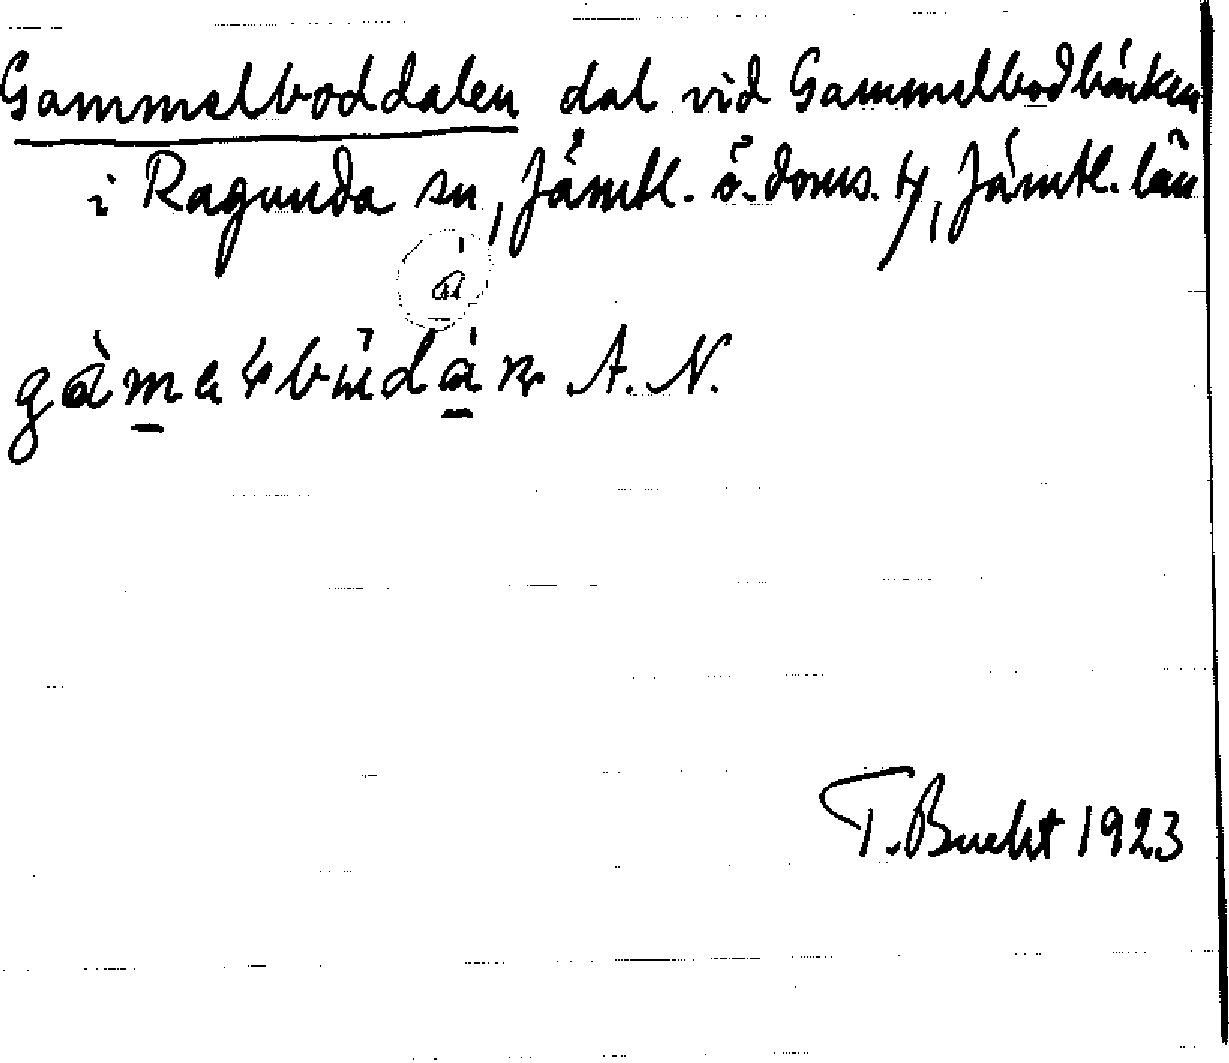 Gammelboddalen dal vid Gammelbodbäcken
i Ragunda sn, Jämtl. ö. doms. , Jämtl. län
A. N.
T. Bucht 1923